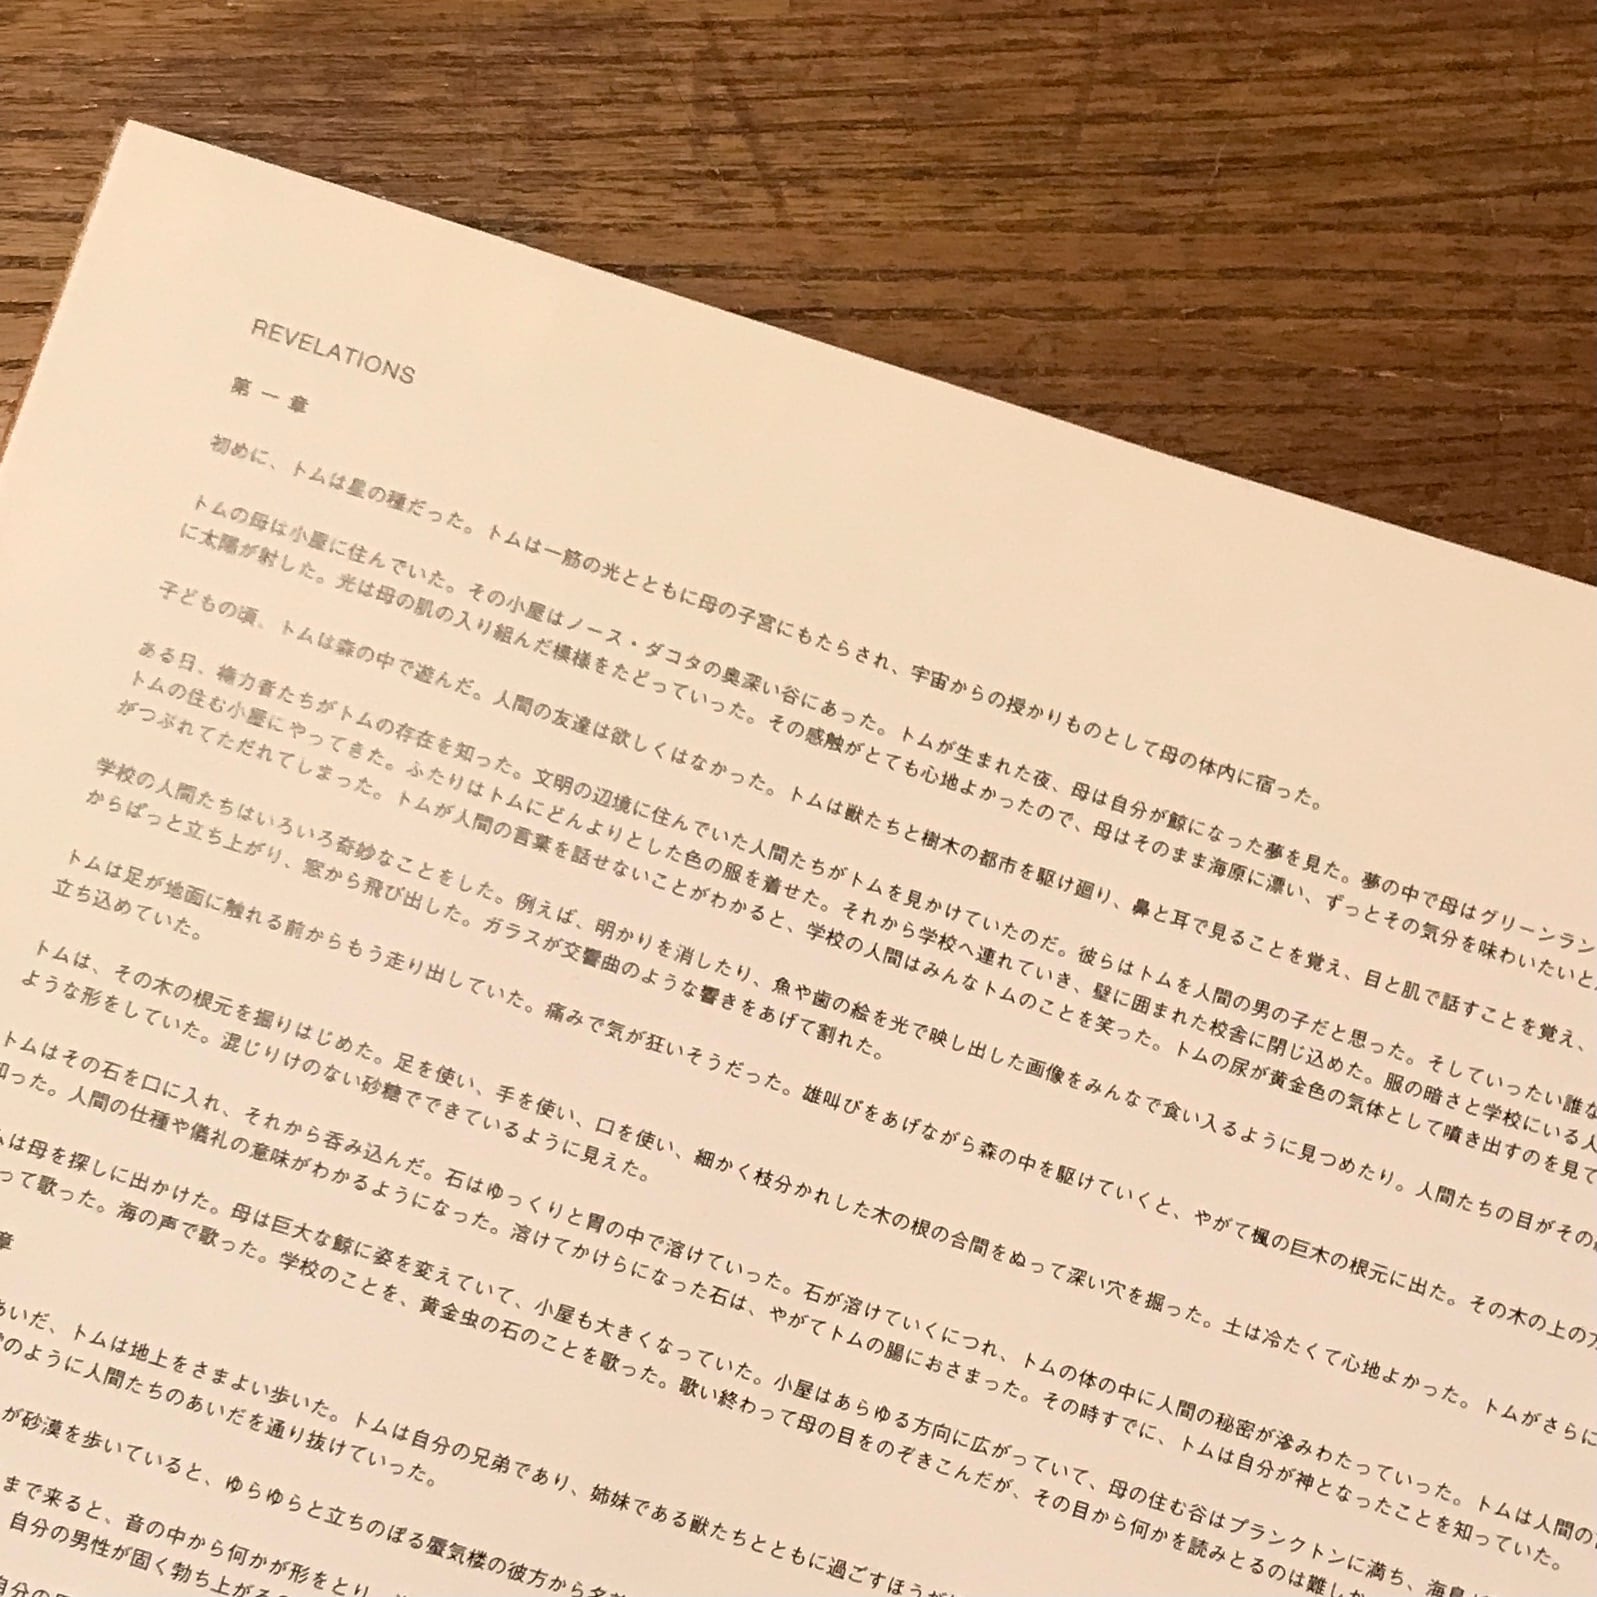 REVELATIONS
第一章
初めに、トムは星の種だった。トムは一筋の光とともに母の子宮にもたらされ、宇宙からの授かりものとして母の体内に宿った。
トムの母は小屋に住んでいた。その小屋はノース・ダコタの奥深い谷にあった。トムが生まれた夜、母は自分が鯨になった夢を見た。夢の中で母はグリーンラン
に太陽が射した。光は母の肌の入り組んだ模様をたどっていった。その感触がとても心地よかったので、母はそのまま海原に漂い、ずっとその気分を味わいたいと
子どもの頃、トムは森の中で遊んだ。人間の友達は欲しくはなかった。トムは獣たちと樹木の都市を駆け廻り、鼻と耳で見ることを覚え、目と肌で話すことを覚え、
ある日、権力者たちがトムの存在を知った。文明の辺境に住んでいた人間たちがトムを見かけていたのだ。彼らはトムを人間の男の子だと思った。そしていったい誰な
トムの住む小屋にやってきた。ふたりはトムにどんよりとした色の服を着せた。それから学校へ連れていき、壁に囲まれた校舎に閉じ込めた。服の暗さと学校にいる人
がつぶれてただれてしまった。トムが人間の言葉を話せないことがわかると、学校の人間はみんなトムのことを笑った。トムの尿が黄金色の気体として噴き出すのを見て
学校の人間たちはいろいろ奇妙なことをした。例えば、明かりを消したり、魚や歯の絵を光で映し出した画像をみんなで食い入るように見つめたり。人間たちの目がその
からぱっと立ち上がり、窓から飛び出した。ガラスが交響曲のような響きをあげて割れた。
トムは足が地面に触れる前からもう走り出していた。痛みで気が狂いそうだった。雄叫びをあげながら森の中を駆けていくと、やがて楓の巨木の根元に出た。その木の上の方
立ち込めていた。
トムは、その木の根元を掘りはじめた。足を使い、手を使い、口を使い、細かく枝分かれした木の根の合間をぬって深い穴を掘った。土は冷たくて心地よかった。トムがさらに
ような形をしていた。混じりけのない砂糖でできているように見えた。
トムはその石を口に入れ、それから呑み込んだ。石はゆっくりと胃の中で溶けていった。石が溶けていくにつれ、トムの体の中に人間の秘密が滲みわたっていった。トムは人間の
知った。人間の仕種や儀礼の意味がわかるようになった。溶けてかけらになった石は、やがてトムの腸におさまった。その時すでに、トムは自分が神となったことを知っていた。
ムは母を探しに出かけた。母は巨大な鯨に姿を変えていて、小屋も大きくなっていた。小屋はあらゆる方向に広がっていて、母の住む谷はプランクトンに満ち、海鳥
って歌った。海の声で歌った。学校のことを、黄金虫の石のことを歌った。歌い終わって母の目をのぞきこんだが、その目から何かを読みとるのは難し
章
あいだ、トムは地上をさまよい歩いた。トムは自分の兄弟であり、姉妹である獣たちとともに過ごすほうが
のように人間たちのあいだを通り抜けていった。
が砂漠を歩いていると、ゆらゆらと立ちのぼる蜃気楼の彼方から
まで来ると、音の中から何かが形をとり
自分の男性が固く勃ち上がる
自分の